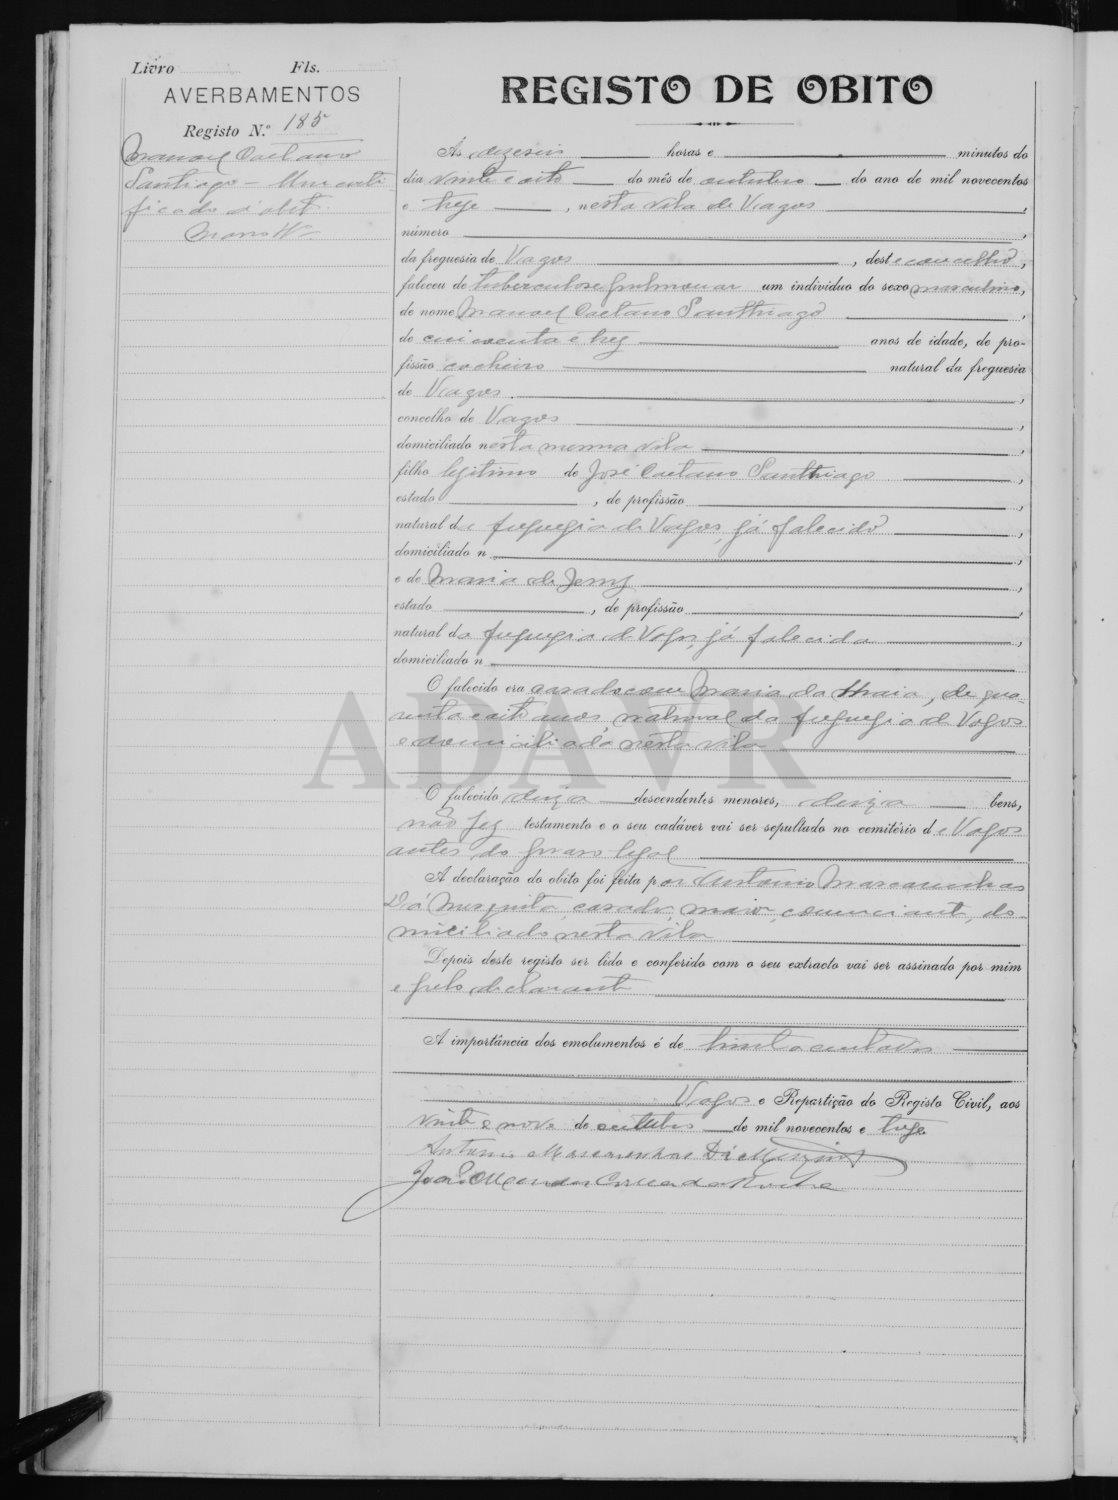 Livro Fls.
AVERBAMENTOS
Registo N.º 185
Manoel Caetano
Santiago - Um certi
ficado d'obit.
REGISTO DE OBITO
Ás dezeseis horas e minutos do
dia vinte e oito do mês de outubro do ano de mil novecentos
e treze, nesta vila de Vagos,
número,
da freguesia de Vagos, deste concelho,
faleceu de tuberculose pulmonar um individuo do sexo masculino,
de nome Manoel Caetano Santhiago,
de cincoenta e trez anos de idade, de pro-
fissão cocheiro natural da freguesia
de Vagos,
concelho de Vagos,
domiciliado nesta mesma vila,
filho legitimo de José Caetano Santhiago,
estado, de profissão,
natural da freguezia de Vagos, já falecido,
domiciliado n,
e de Maria de Jesus,
estado, de profissão,
natural da freguezia de Vagos, já falecida,
domiciliado n
O falecido era casado com Maria da Maia, de qua-
renta e oito anos, natural da freguezia de Vagos
e domiciliada nesta vila
ADAVR
O falecido deixa descendentes menores, deixa bens,
não fez testamento e o seu cadáver vai ser sepultado no cemitério de Vagos
antes do praso legal
A declaração do obito foi feita por Antonio Mascarenhas
Dá Mesquita, casado, maior, comerciante, do-
miciliado nesta vila
Depois deste registo ser lido e conferido com o seu extracto vai ser assinado por mim
e pelo declarante
A importância dos emolumentos é de trinta centavos
Vagos e Repartição do Registo Civil, aos
vinte e nove de outubro de mil novecentos e treze
Antonio Mascarenhas Dá Mesquita
João Mendes Correia da Rocha